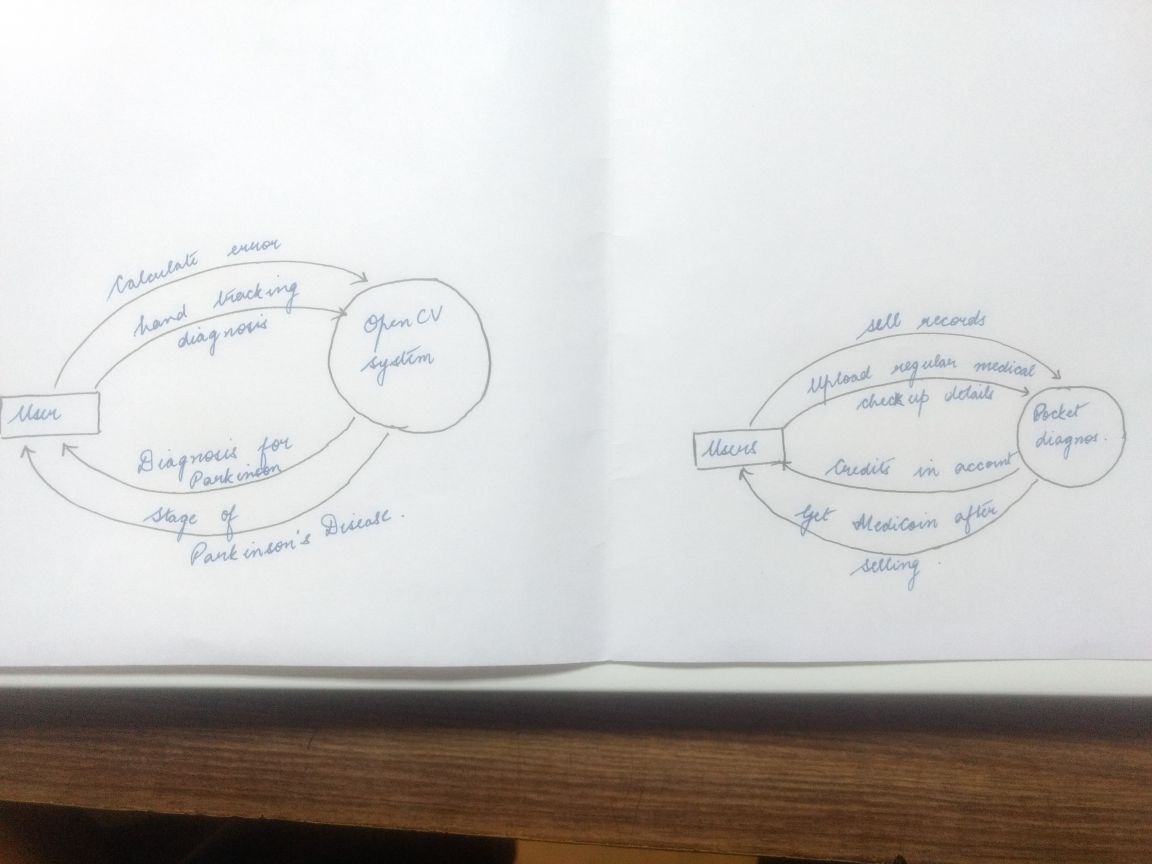 Calculate error
hand tracking
diagnosis
OpenCV
system
User
Diagnosis for
Parkinson
Stage of
Parkinson's Disease.
sell records
Upload regular medical
check up details
Pocket
diagnos.
Users
Credits in account
Get Medicoin after
selling.